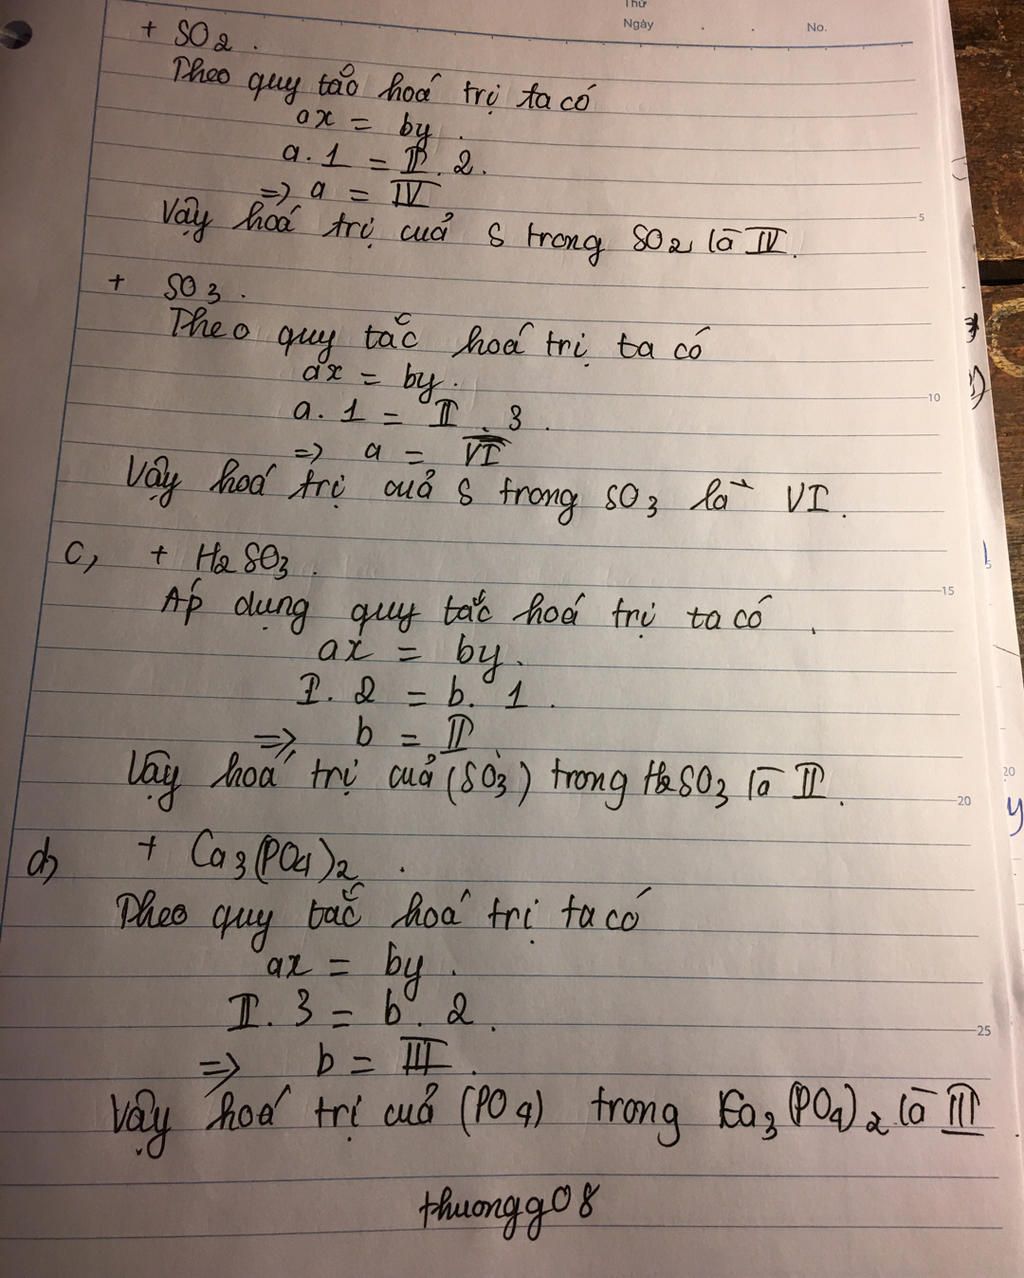 Thứ
Ngày . . No.
+ SO2 .
Theo quy tắc hoá trị ta có
ax = by .
a. 1 = II. 2.
=> a = IV
Vậy hoá trị cuả S trong SO2 là IV.
5
+ SO3 .
Theo quy tắc hoá trị ta có
ax = by.
10
a. 1 = II . 3 .
=> a = VI
Vậy hoá trị cuả S trong SO3 là VI.
c, + H2SO3 .
15
Áp dụng quy tắc hoá trị ta có .
ax = by.
I. 2 = b. 1 .
=> b = II
Vậy hoá trị cuả (SO3) trong H2SO3 là II.
20
d, + Ca3(PO4)2 .
Theo quy tắc hoá trị ta có
ax = by .
II. 3 = b . 2 .
25
=> b = III .
Vậy hoá trị cuả (PO4) trong Ca3(PO4)2 là III
thuongg08